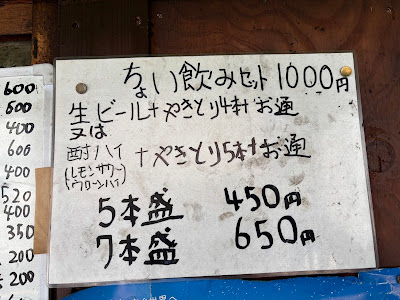 ちょい飲みセット1000円
生ビール+やきとり4本+お通
又は
酎ハイ+やきとり5本+お通
(レモンサワー)
(ウーロンハイ)
5本盛 450円
7本盛 650円
600
500
400
600
400
520
400
350
200
200